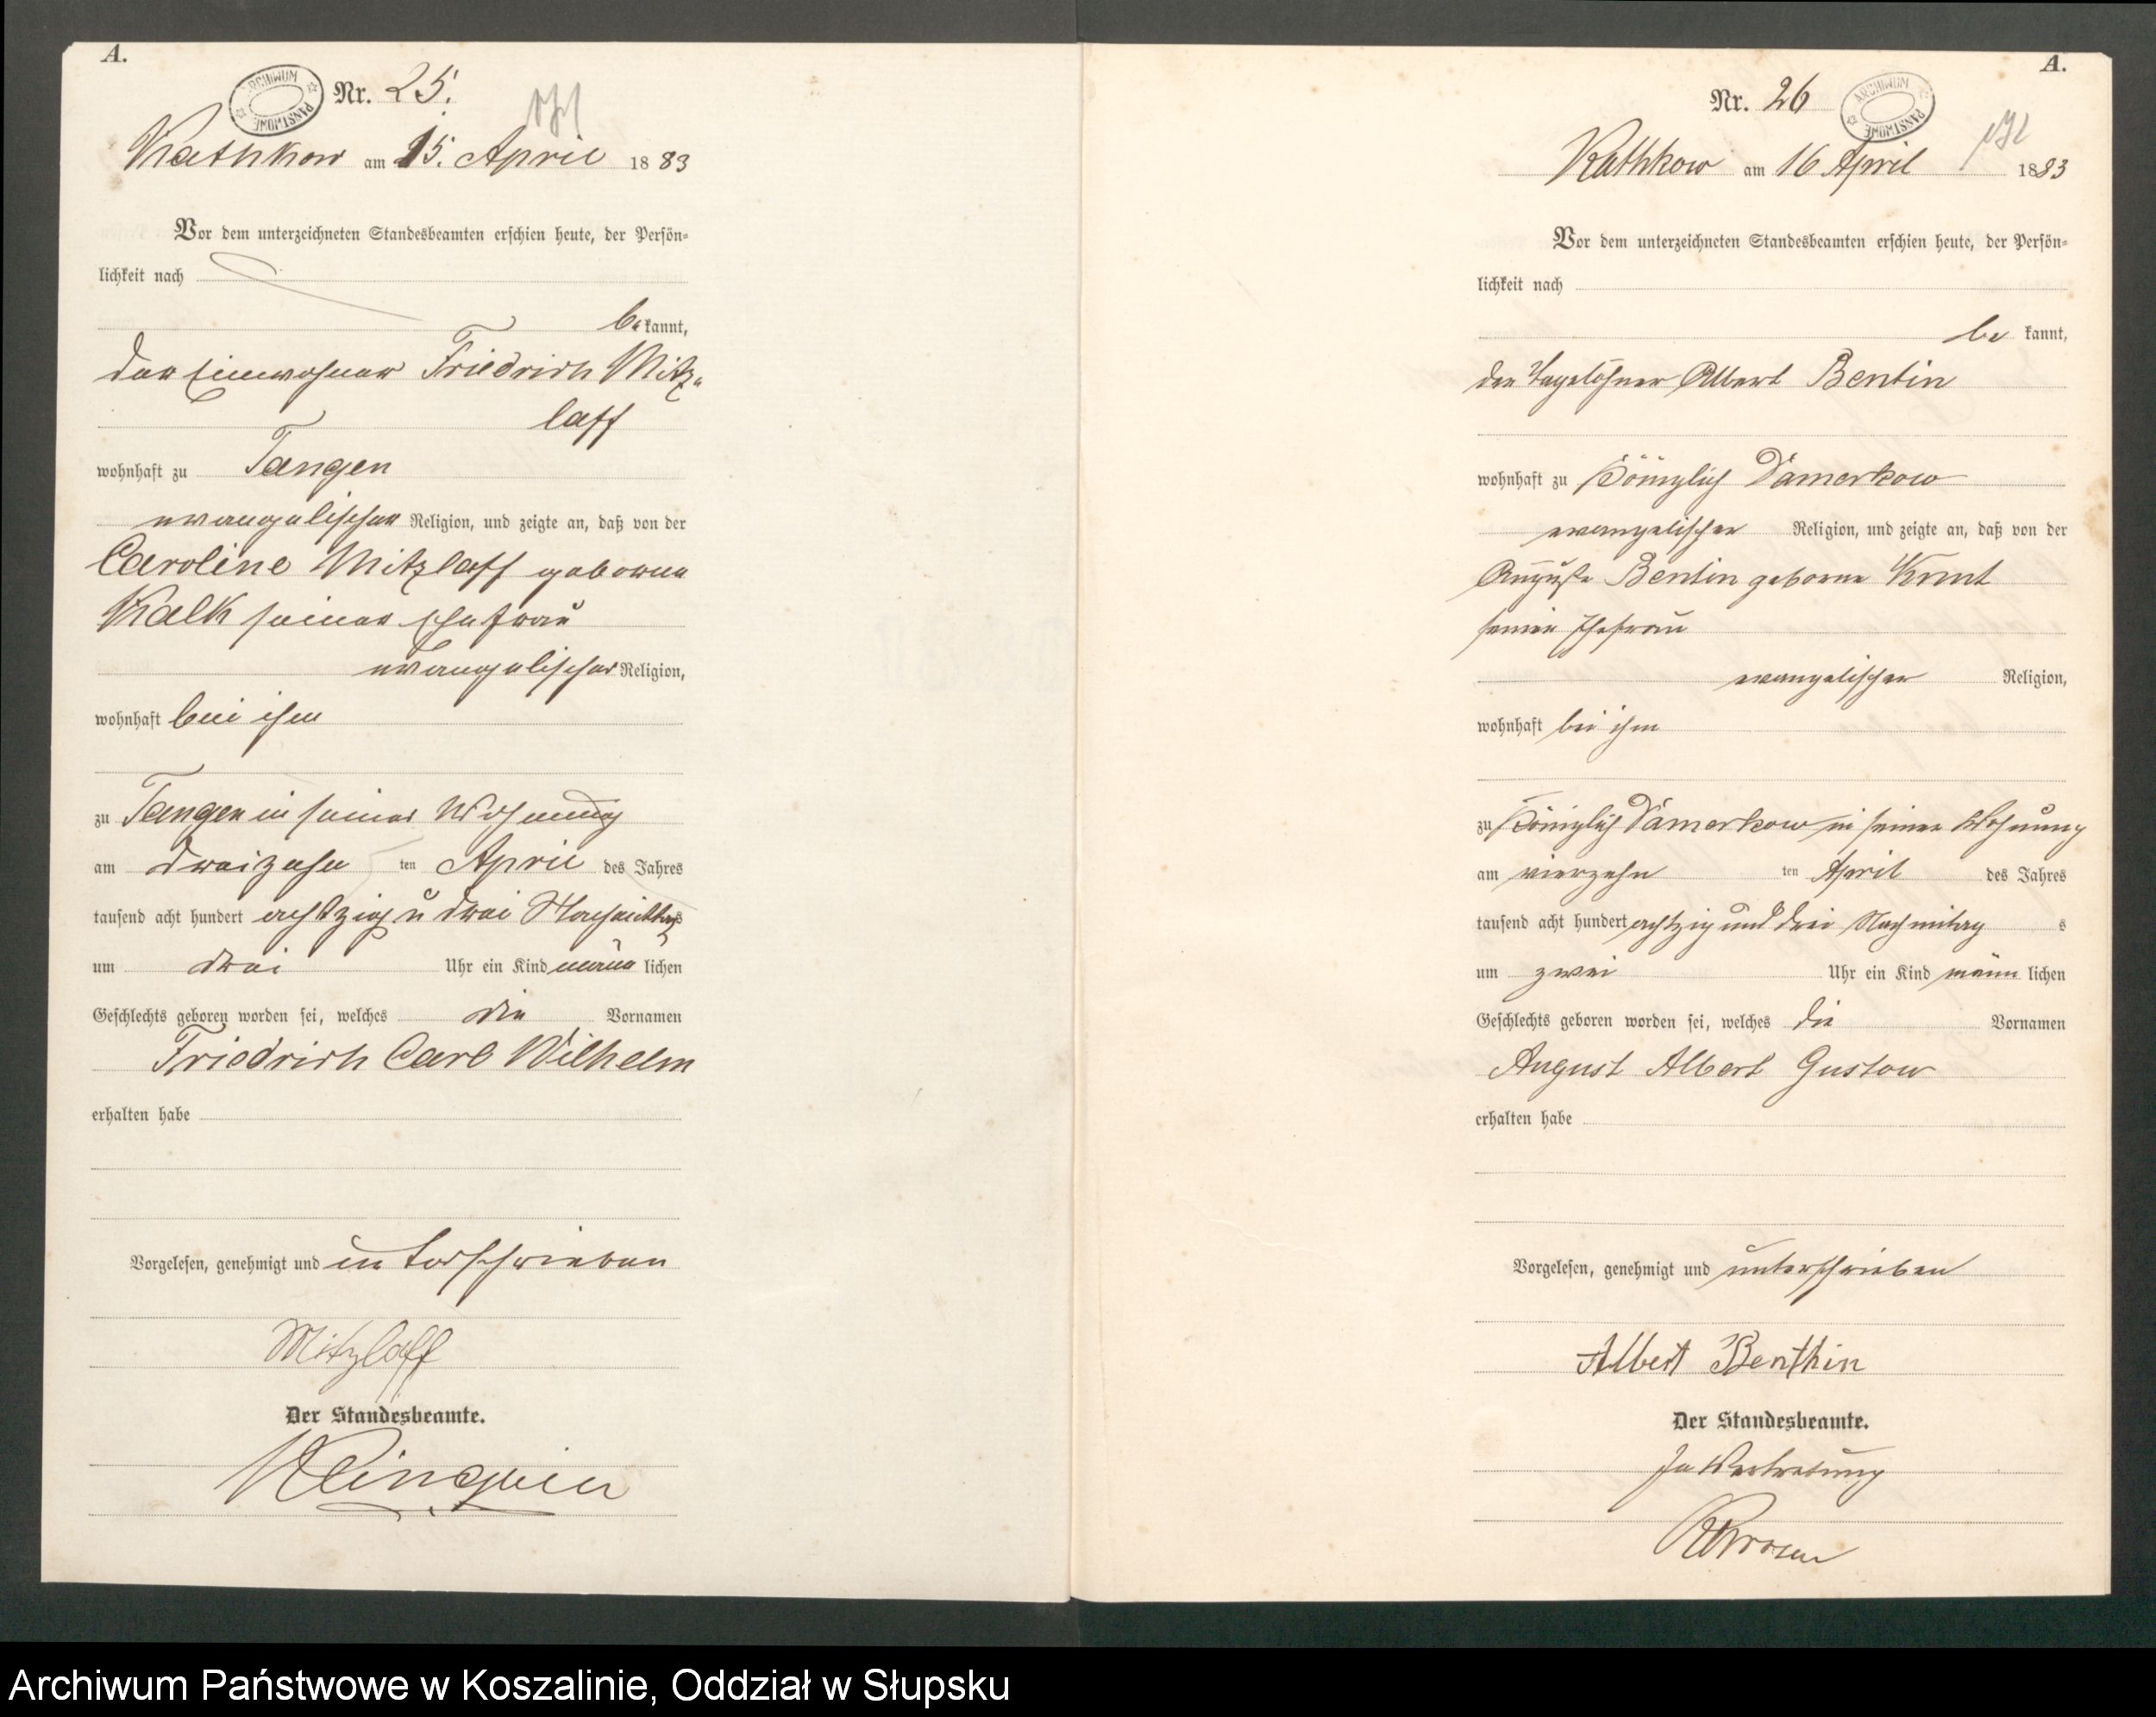 A.
ARCHIWUM PAŃSTWOWE
Nr. 25.
Kathkow am 15. April 1883
Vor dem unterzeichneten Standesbeamten erschien heute, der Persön-
lichkeit nach
bekannt,
der Einwohner Friedrich Mitz-
laff
wohnhaft zu Tangen
evangelischer Religion, und zeigte an, daß von der
Caroline Mitzlaff geborne
Kalk seiner Ehefrau
evangelischer Religion,
wohnhaft bei ihm
zu Tangen in seiner Wohnung
am dreizehn ten April des Jahres
tausend acht hundert achtzig u drei Nachmittags
um drei Uhr ein Kind männlichen
Geschlechts geboren worden sei, welches die Vornamen
Friedrich Carl Wilhelm
erhalten habe
Vorgelesen, genehmigt und unterschrieben
Mitzlaff
Der Standesbeamte.
A.
Nr. 26
ARCHIWUM PAŃSTWOWE
Kathkow am 16 April 1883
Vor dem unterzeichneten Standesbeamten erschien heute, der Persön-
lichkeit nach
bekannt,
der Tagelöhner Albert Bentin
wohnhaft zu Königlich Damerkow
evangelischer Religion, und zeigte an, daß von der
Auguste Bentin geborne
seiner Ehefrau
evangelischer Religion,
wohnhaft bei ihm
zu Königlich Damerkow in seiner Wohnung
am vierzehn ten April des Jahres
tausend acht hundert achtzig und drei Nachmittag s
um zwei Uhr ein Kind männlichen
Geschlechts geboren worden sei, welches die Vornamen
August Albert Gustav
erhalten habe
Vorgelesen, genehmigt und unterschrieben
Albert Benthin
Der Standesbeamte.
In Vertretung
Archiwum Państwowe w Koszalinie, Oddział w Słupsku